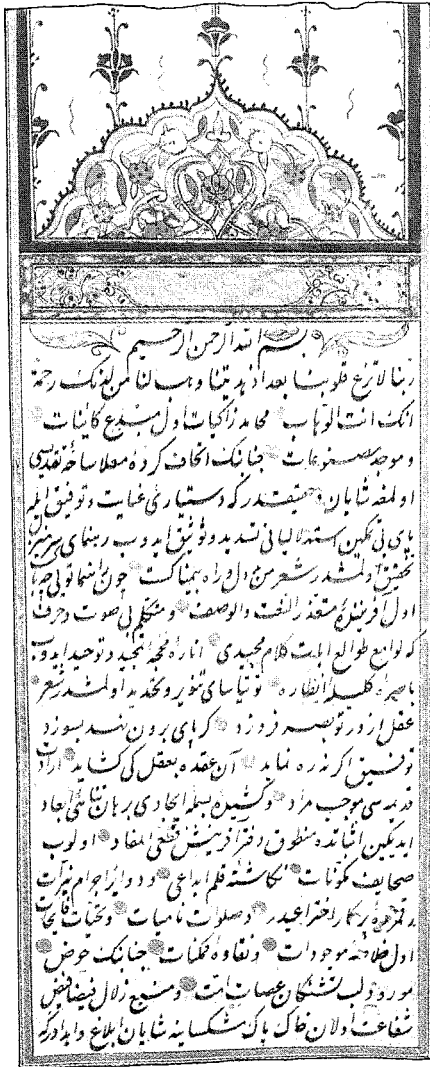 بسم الله الرحمن الرحيم
ربنا لا تزغ قلوبنا بعد اذ هديتنا وهب لنا من لدنك رحمة
انك انت الوهاب محامد زاكيات اول مبدع كاينات
وموجد مصنوعات جنابنك اتحاف كرده معلا ساحه تقديسى
اولمغه شايان وحقيقتدر كه دستيارئ عنايت وتوفيق ايله
پاى بى تمكين استدلاليانى تسديد وتوثيق ايدوب رهنماى سرمنزل
تحقيق اولمشدر شعر من دل وراه بيمناكست چون
اول آفريننده متعذر النعت والوصف ومتكلم بى صوت وحرف
كه لوامع طوالع آيات كلام مجيدى انارۀ محجۀ تمجيد وتوحيد ايدوب
باصرۀ انظاره توتياساى تنوير وتحديد اولمشدر شعر
عقل از ور تو بصر فروزد كر پاى برون نهد بسوزد
توفيق اكر نه ره نمايد آن عقده بعقل كى كشايد
قديمه سى موجب مراد
ايديكين اثباتده منطوق دفتر آفرينش قطعى المفاد اولوب
صحايف مكونات نكاشتۀ قلم ابداعى ودواير اجرام نيرات
پركار اختراعيدر وصلوات ناميات وتحيات
اول خلاصۀ موجودات ونقاوۀ ممكنات جنابنك حوض
مورود لب تشنكان عصات امت ومنبع زلال فيضافيض
شفاعت اولان خاك پاك مشكساينه شايان ابلاغ واهدادر كه